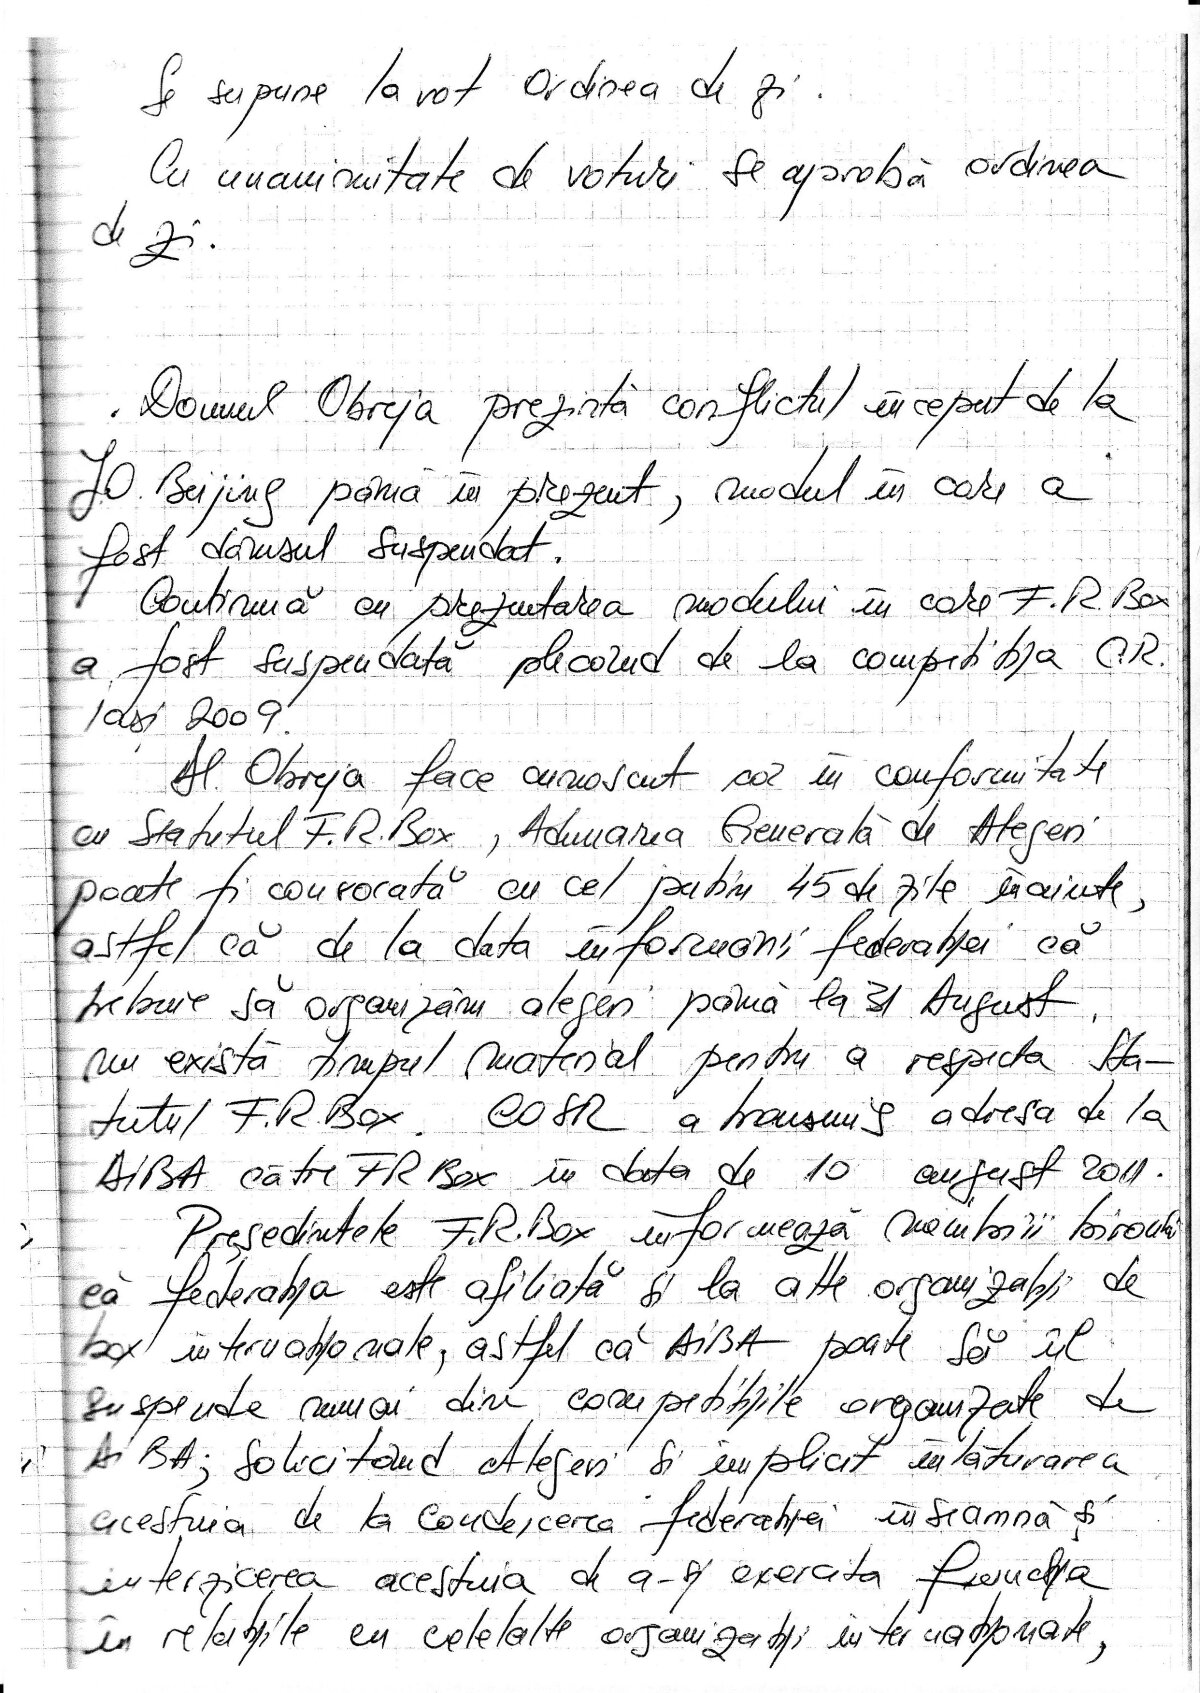 Se supune la vot Ordinea de zi.
Cu unanimitate de voturi se aprobă ordinea
de zi.
. Domnul Obreja prezintă conflictul început de la
J.O. Beijing până în prezent, modul în care a
fost dânsul suspendat.
Continuă cu prezentarea modului în care F.R.Box
a fost suspendată plecând de la competiția C.R.
Iași 2009.
Dl. Obreja face cunoscut că în conformitate
cu Statutul F.R.Box, Adunarea Generală de Alegeri
poate fi convocată cu cel puțin 45 de zile înainte,
astfel că de la data informării federației că
trebuie să organizăm alegeri până la 31 August,
nu există timpul material pentru a respecta Sta-
tutul F.R.Box. COSR a transmis adresa de la
AIBA către FR Box în data de 10 august 2011.
Președintele F.R.Box informează membrii biroului
că federația este afiliată și la alte organizații de
box internaționale, astfel că AIBA poate să îl
suspende numai din competițiile organizate de
AIBA; solicitând Alegeri și implicit înlăturarea
acestuia de la conducerea federației înseamnă și
interzicerea acestuia de a-și exercita funcția
în relațiile cu celelalte organizații internaționale,